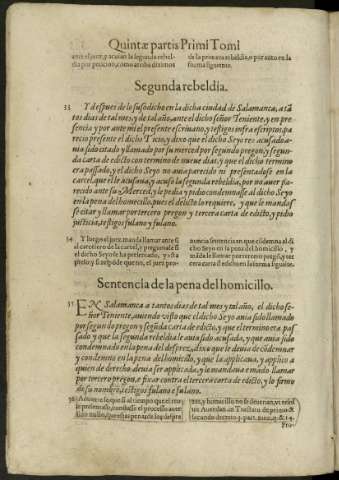 Quintæ partis Primi Tomi
ante el juez, y acusan la segunda rebel-
dia por peticion, como arriba diximos
de la primera rebeldia, o por auto en la
forma siguiente.
Segunda rebeldia.
33 Y despues de lo susodicho en la dicha ciudad de Salamanca, a tā
tos dias de tal mes, y de tal año, ante el dicho señor Teniente, y en pre-
sencia y por ante mi el presente escriuano, y testigos infra escriptos, pa
recio presente el dicho Ticio, y dixo que el dicho Seyo res acusado a-
uia sido citado y llamado por su merced por segundo pregon, y segun-
da carta de edicto con termino de nueue dias, y que el dicho termino
era passado, y el dicho Seyo no auia parecido ni presentadose en la
carcel, que el le acusaua, y acuso la segunda rebeldia, por no auer pa-
recido ante su Merced, y le pedia y pidio condemnasse al dicho Seyo
en la pena del homecillo, pues el delicto lo requiere, y que le mandas
se citar y llamar por tercero pregon y tercera carta de edicto, y pidio
justicia, testigos fulano y fulano.
34 Y luego el juez manda llamar ante si
al carcelero de la carcel, y pregunta le si
el dicho Seyo se ha presentado, y
no, el juez pro-
nuncia sentencia en que cōdemna al di
cho Seyo en la pena del homecillo, y
manda llamar por tercero pregō, y ter
cera carta d edicto en la forma siguiēte.
Sentencia de la pena del homicillo.
35 EN Salamanca a tantos dias de tal mes y tal año, el dicho se-
ñor Teniente, auiendo visto que el dicho Seyo auia sido llamado
por segundo pregon y segūda carta de edicto, y que el termino era pas
sado y que la segunda rebeldia le auia sido acusada, y que auia sido
condemnado en la pena del desprez, dixo que le deuia de cōdemnar
y condemno en la pena del homicillo, y que la applicaua, y applico a
quien de derecho deuia ser applicada, y le mandaua e mādo llamar
por tercero pregon, e fixar contra el tercera carta de edicto, y lo firmo
de su nombre, testigos fulano e fulano.
36 Aduierte se que si al tiempo que el reo
se presentasse, estuuiesse el processo ante
pena de los despre-
zes, y homicillo no se deuerian, vt resol
uit Auendan. in Tractatu de primis &
secundo decreto 3. part. num. 9. & 14.
Pro-